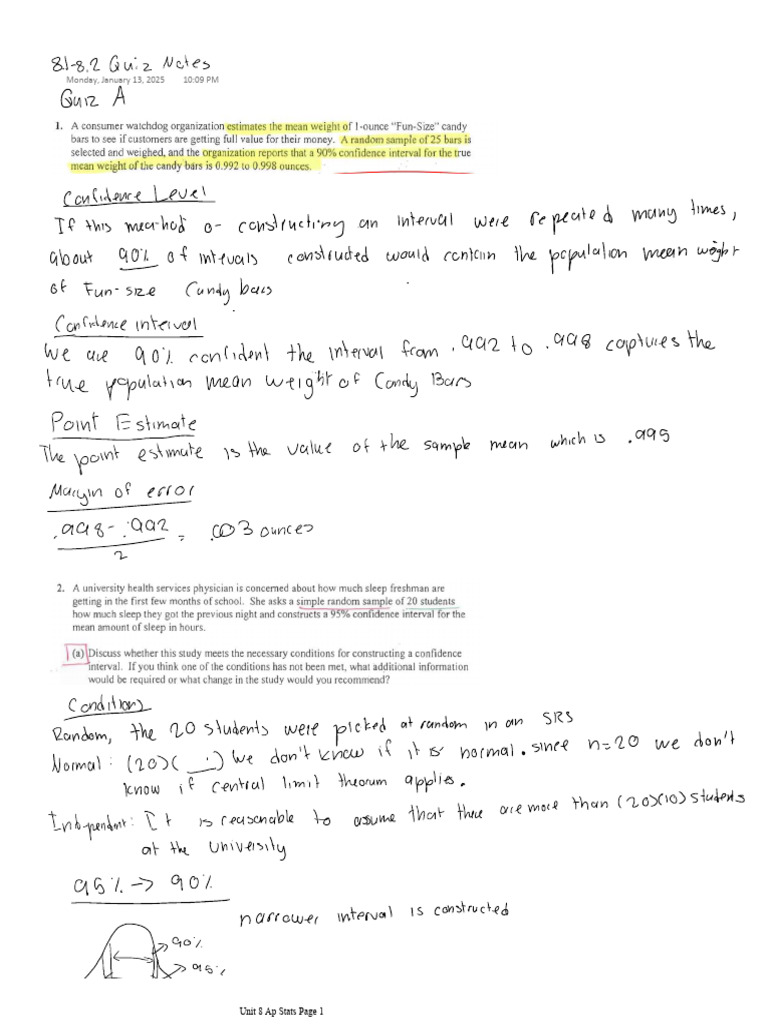 8.1-8.2 Quiz Notes
Monday, January 13, 2025 10:09 PM
Quiz A
1. A consumer watchdog organization estimates the mean weight of 1-ounce "Fun-Size" candy
bars to see if customers are getting full value for their money. A random sample of 25 bars is
selected and weighed, and the organization reports that a 90% confidence interval for the true
mean weight of the candy bars is 0.992 to 0.998 ounces.
Confidence Level
If this method o- constructing an interval were repeated many times,
about 90% of intevals constructed would contain the population mean weight
of Fun-size Candy bars
Confidence interval
We are 90% confident the interval from .992 to .998 captures the
true population mean weight of Candy Bars
Point Estimate
The point estimate is the value of the sample mean which is .995
Margin of error
.998-.992
2
= .003 ounces
2. A university health services physician is concerned about how much sleep freshman are
getting in the first few months of school. She asks a simple random sample of 20 students
how much sleep they got the previous night and constructs a 95% confidence interval for the
mean amount of sleep in hours.
(a) Discuss whether this study meets the necessary conditions for constructing a confidence
interval. If you think one of the conditions has not been met, what additional information
would be required or what change in the study would you recommend?
Conditions
Random, the 20 students were picked at random in an SRS
Normal: (20)( _.) We don't know if it is normal. since n=20 we don't
know if central limit theorum applies.
Independent: It is reasonable to assume that there are more than (20)(10) students
at the university
95% -> 90%
narrower interval is constructed
90%
95%
Unit 8 Ap Stats Page 1